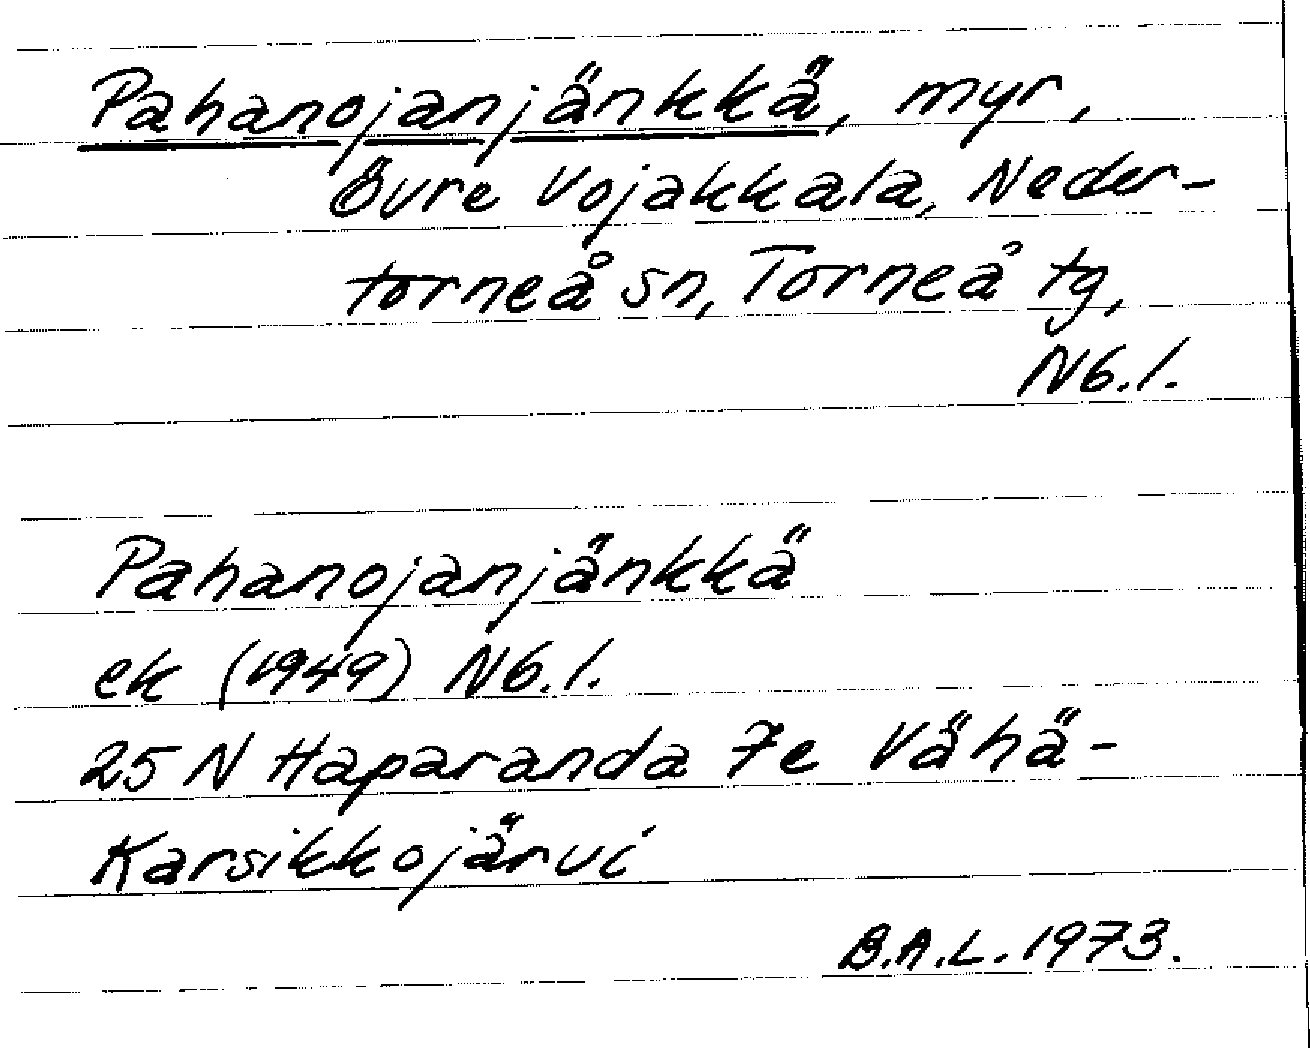 Pahanojanjänkkä, myr,
Övre Vojakkala, Neder-
torneå sn, Torneå tg,
Nb.l.
Pahanojanjänkkä
ek (1949) Nb.l.
25 N Haparanda 7e Vähä-
Karsikkojärvi
B.A.L. 1973.